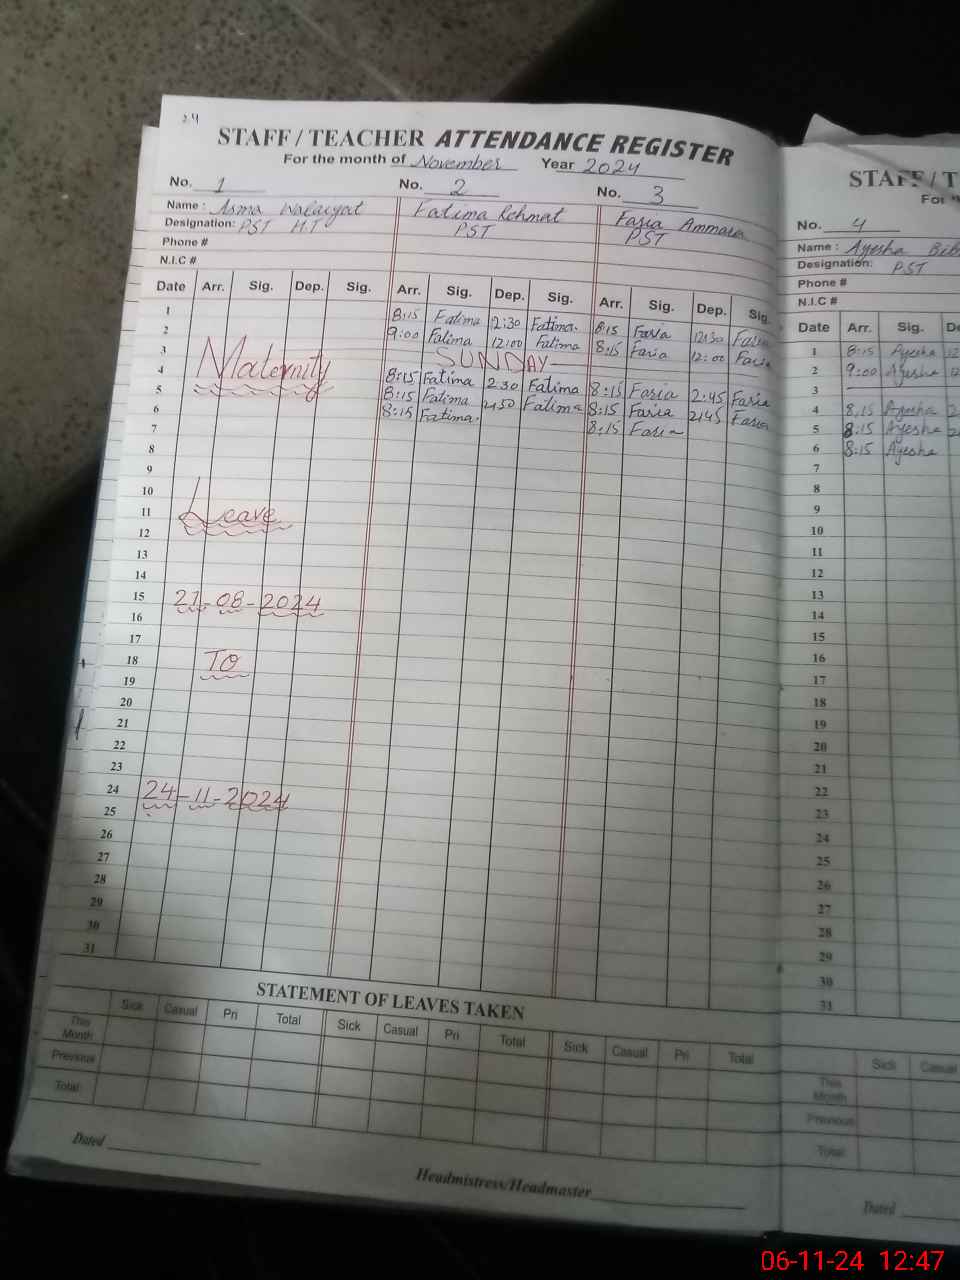 24
STAFF / TEACHER ATTENDANCE REGISTER
For the month of November Year 2024
No. 1 No. 2 No. 3
Name : Asma Walaiyat Fatima Rehmat Faria Ammara
Designation: PST H.T PST PST
Phone #
N.I.C #
Date Arr. Sig. Dep. Sig. Arr. Sig. Dep. Sig. Arr. Sig. Dep. Sig.
1 8:15 Fatima 12:30 Fatima. 8:15 Faria 12:30 Faria
2 9:00 Fatima 12:00 Fatima 8:15 Faria 12:00 Faria
3 SUNDAY
Maternity
4 8:15 Fatima 2:30 Fatima 8:15 Faria 2:45 Faria
5 8:15 Fatima 2:50 Fatima 8:15 Faria 2:45 Faria
6 8:15 Fatima. 8:15 Faria
7
8
9
10
11 Leave
12
13
14
15 21-08-2024
16
17
18 TO
19
20
21
22
23
24 24-11-2024
25
26
27
28
29
30
31
STATEMENT OF LEAVES TAKEN
Sick Casual Pri Total Sick Casual Pri Total Sick Casual Pri Total
This Month
Previous
Total
Dated
Headmistress/Headmaster
STAFF / T
No. 4
Name : Ayesha Bib
Designation: PST
Phone #
N.I.C #
Date Arr. Sig. De
1 8:15 Ayesha 12
2 9:00 Ayesha 12
3
4 8:15 Ayesha 2
5 8:15 Ayesha 2
6 8:15 Ayesha
7
8
9
10
11
12
13
14
15
16
17
18
19
20
21
22
23
24
25
26
27
28
29
30
31
Sick Casual
This Month
Previous
Total
Dated
06-11-24 12:47